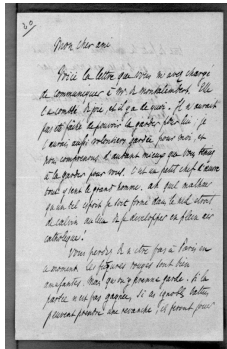 20
Mon cher ami
Voici la lettre que vous m'avez chargé
de communiquer à Mr de Montalembert. Elle
l'a comblé de joie, et il y a de quoi. Il n'aurait
pas été fâché de pouvoir la garder pour lui. Je
l'aurai aussi volontiers gardée pour moi, et
nous comprenons d'autant mieux que vous teniez
à la garder pour vous. C'est un petit chef d'œuvre
tout y sent le grand homme. Ah quel malheur
qu'un tel esprit se soit formé dans le
de Calvin au lieu de se développer en plein air
catholique.
Vous perdez de n'être pas à Paris en
ce moment. Les figures rouges sont bien
amusantes. Mais qu'on y prenne garde. Si la
partie n'est pas gagnée, si
peuvent prendre une revanche, ils feront